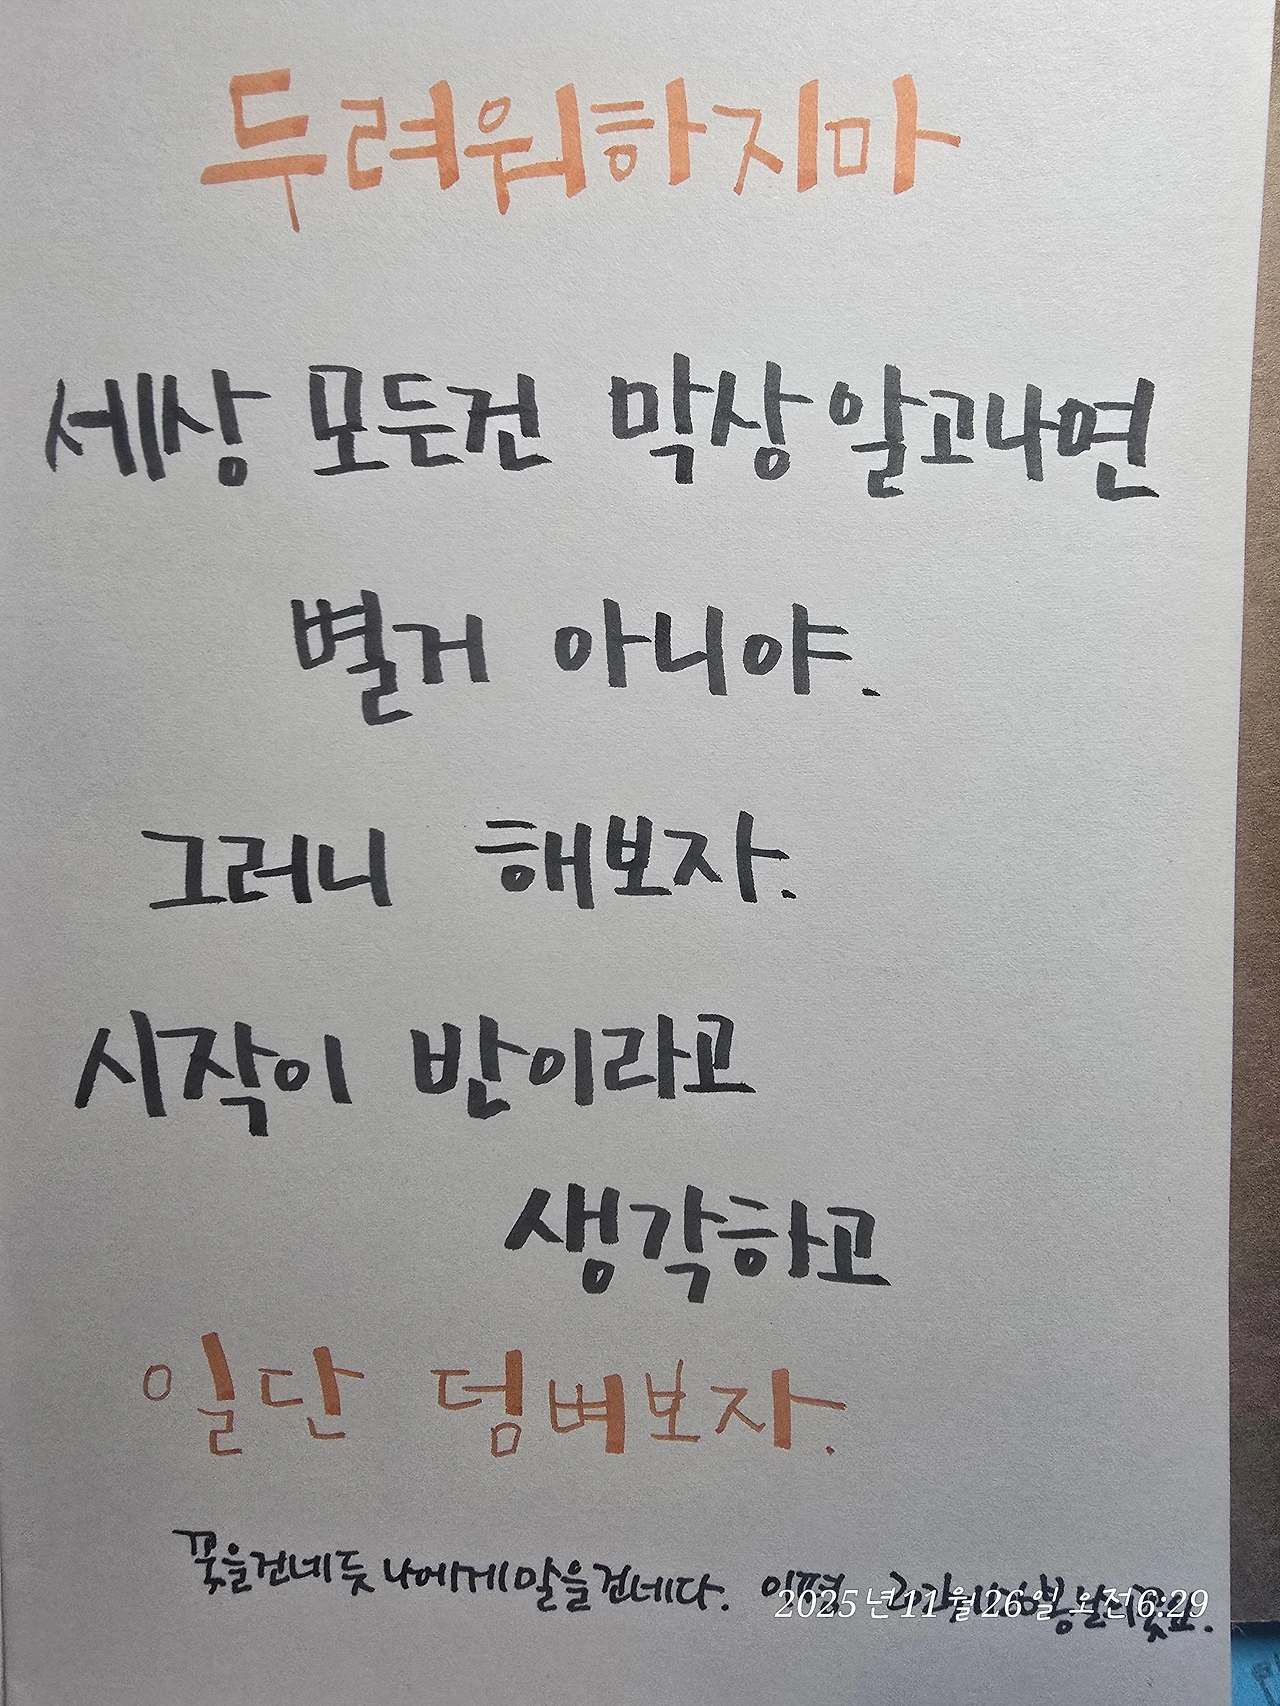 두려워하지마
세상 모든건 막상 알고나면
별거 아니야.
그러니 해보자.
시작이 반이라고
생각하고
일단 덤벼보자.
꽃을건네듯 나에게말을건네다. 이평
2025년 11월 26일 오전 6:29